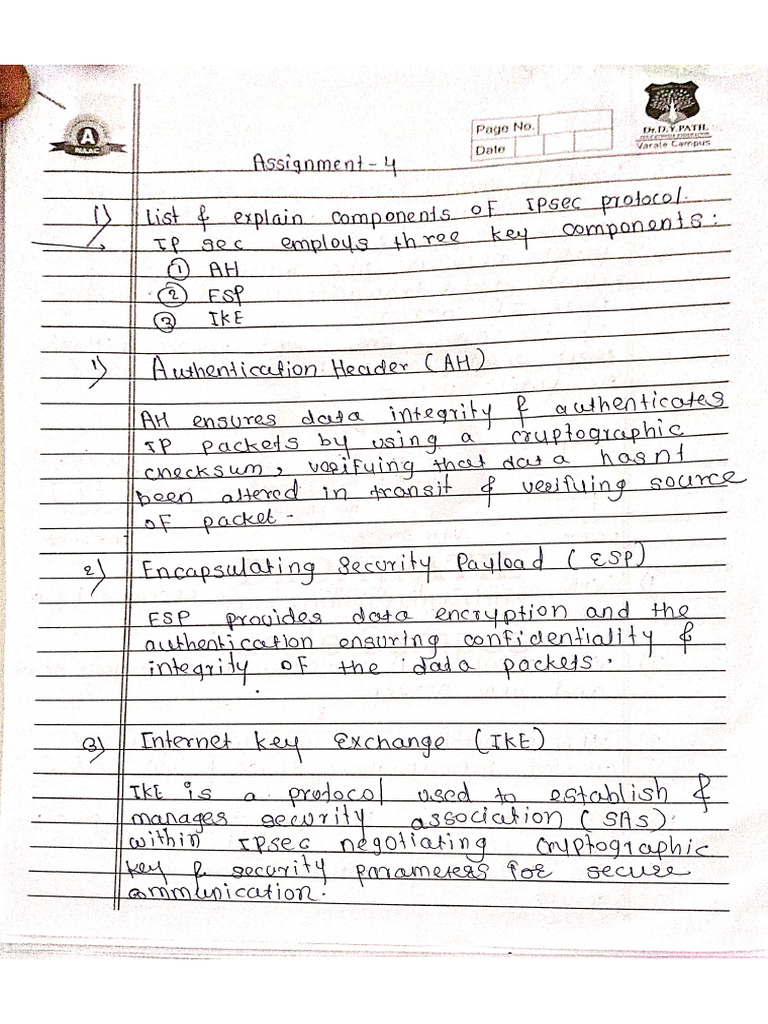 A
NAAC
Page No.
Date
Dr. D. Y. PATIL
Varale Campus
Assignment - 4
1) List & explain components of IPsec protocol.
IP sec employs three key components:
① AH
② ESP
③ IKE
1) Authentication Header (AH)
AH ensures data integrity & authenticates
IP packets by using a cryptographic
checksum, verifying that data hasnt
been altered in transit & verifying source
of packet.
2) Encapsulating Security Payload (ESP)
ESP provides data encryption and the
authentication ensuring confidentiality &
integrity of the data packets.
3) Internet Key Exchange (IKE)
IKE is a protocol used to establish &
manages security association (SAs)
within IPsec negotiating cryptographic
key & security parameters for secure
communication.